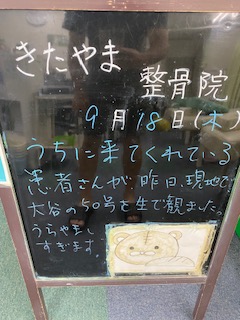 きたやま
整骨院
9月18日(木)
うちに来てくれている
患者さんが昨日、現地で
大谷の50号を生で観ました。
うらやまし
すぎます。